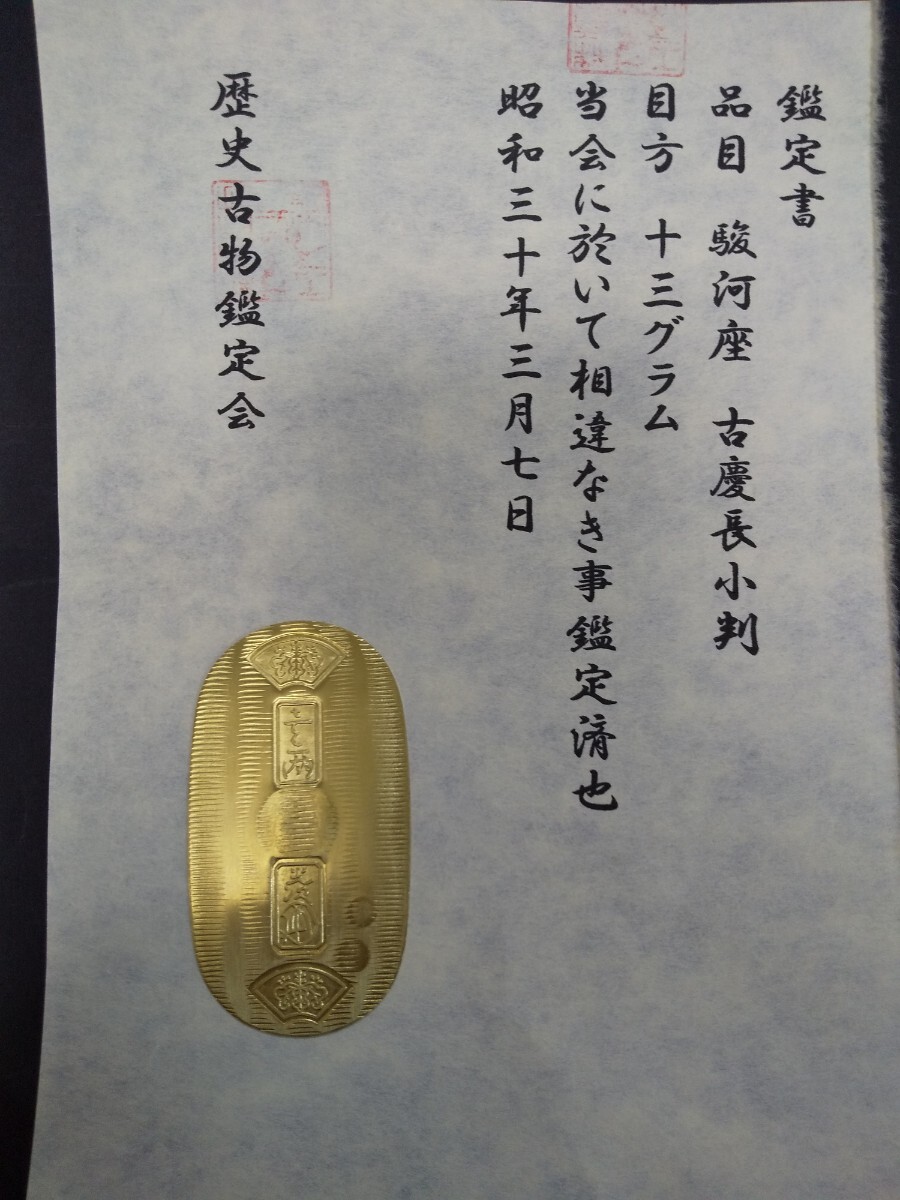 鑑定書
品目 駿河座 古慶長小判
目方 十三グラム
当会に於いて相違なき事鑑定済也
昭和三十年三月七日
歴史古物鑑定会
壹両
光次